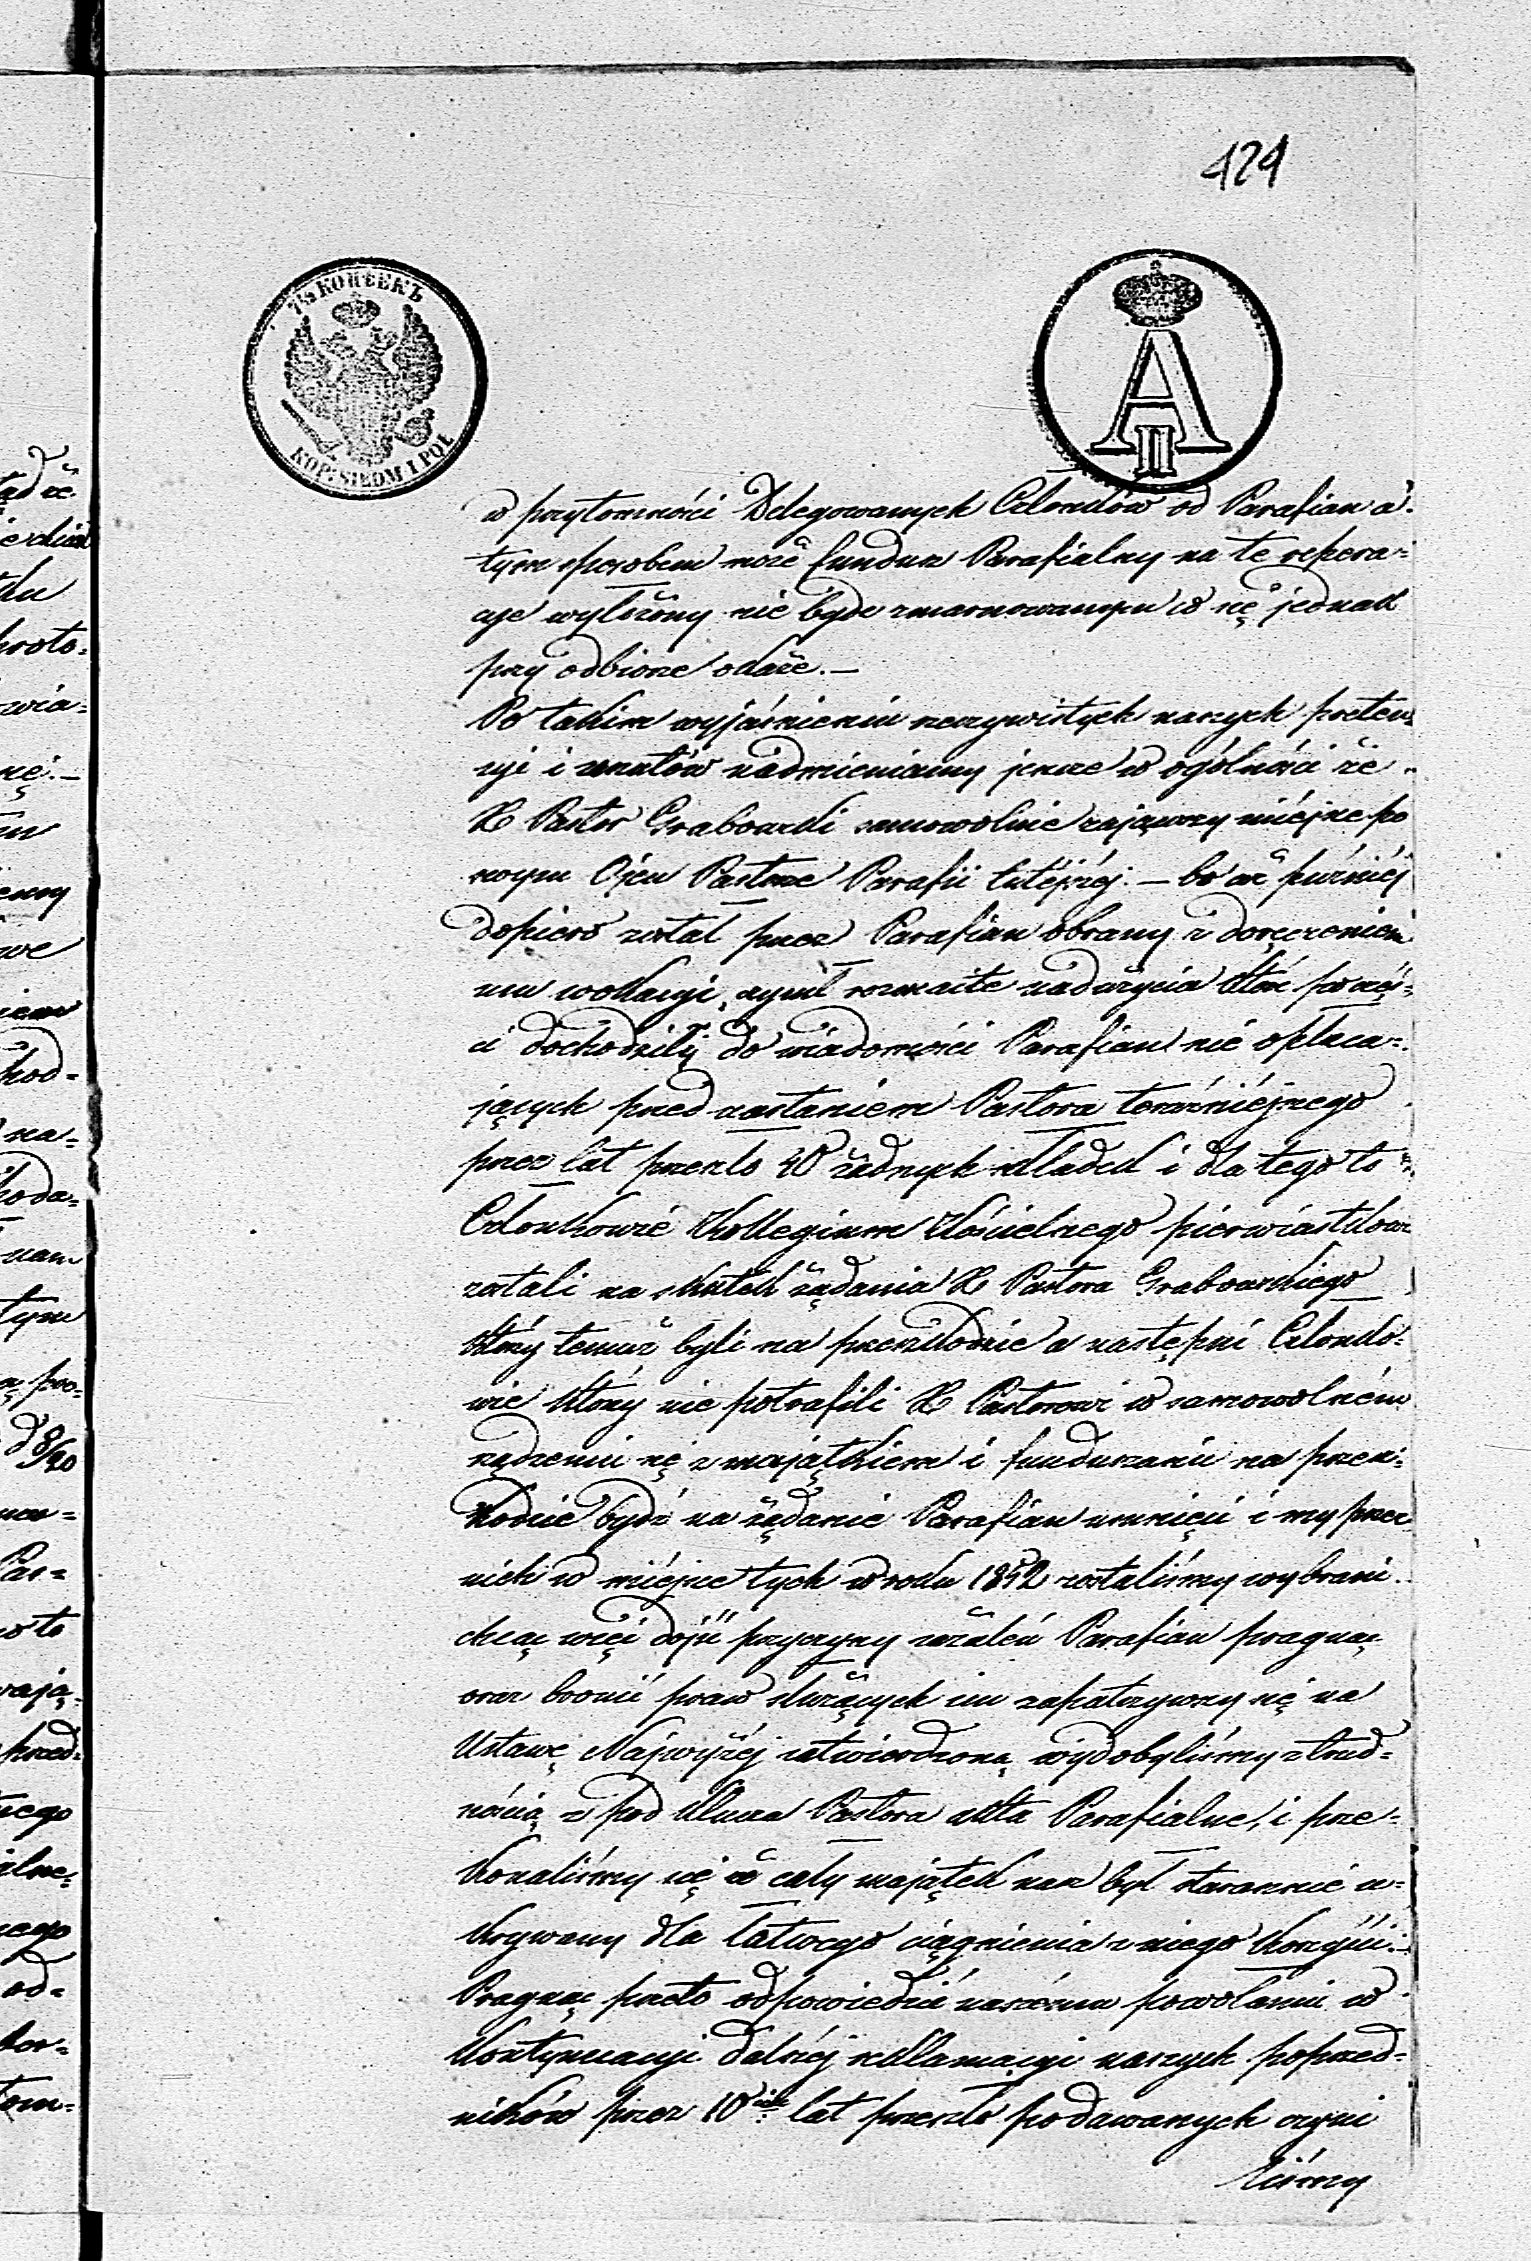 424
7½ КОПѢЕКЪ
KOP. SIEDM I PÓŁ
A II
w przytomności Delegowanych Członków od Parafian a
tym sposobem może fundusz Parafialny na te repera=
cje wyłożony nie będzie zmarnowanym co się jednak
przy odbiorze okaże.—
Po takim wyjaśnieniu rzeczywistych naszych preten
syi i nadmieniamy jeszcze w ogólności że
X Pastor Grabowski samowolnie zająwszy miejsce po
swym Ojcu Pastorze Parafii tutéjszéj.— bo aż późniéj
dopiero został przez Parafian obrany z doręczeniem
mu wokacyi, czynił rozmaite nadużycia które po częś=
ci dochodziły do wiadomości Parafian nie opłaca=
jących przed nastaniem Pastora teraźniéjszego
przez lat przeszło 40 żadnych składek i dla tego to
Członkowie Kollegium Kościelnego pierwiastkow
zostali na skutek żądania X Pastora Grabowskiego
którzy temuż byli na przeszkodzie a następni Członko=
wie którzy nie potrafili X Pastorowi w samowolném
rządzeniu się z majątkiem i funduszami na przesz=
kodzie bydź na żądanie Parafian usunięci i my przez
nich w miéjsce tych w roku 1852 zostaliśmy wybrani.
chcąc więc dojść przyczyny zażaleń Parafian pragnąc
oraz bronić praw służących im zapatrzywszy się na
Ustawę Najwyżéj zatwierdzoną wydobyliśmy z trud=
nością z pod klucza Pastora akta Parafialne, i prze=
konaliśmy się że cały majątek nasz był starannie u=
krywany dla łatwego ciągnienia z niego korzyści.—
Pragnąc przeto odpowiedzieć naszému powołaniu w
kontynuacyi dalszéj reklamacyi naszych poprzed=
ników przez 10 lat przeszło podawanych czyni
liśmy